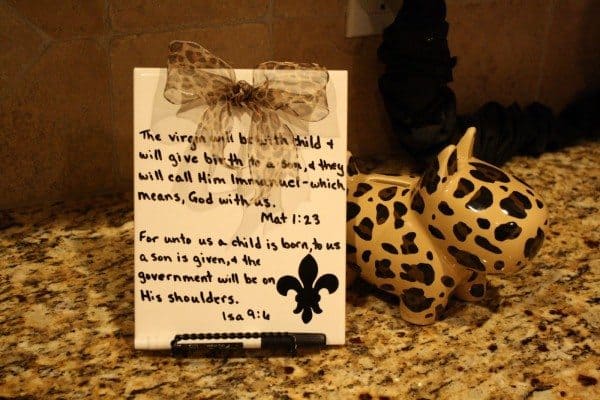 The virgin will be with child &
will give birth to a son, & they
will call Him Immanuel-which
means, God with us.
Mat 1:23
For unto us a child is born, to us
a son is given, & the
government will be on
His shoulders.
Isa 9:6